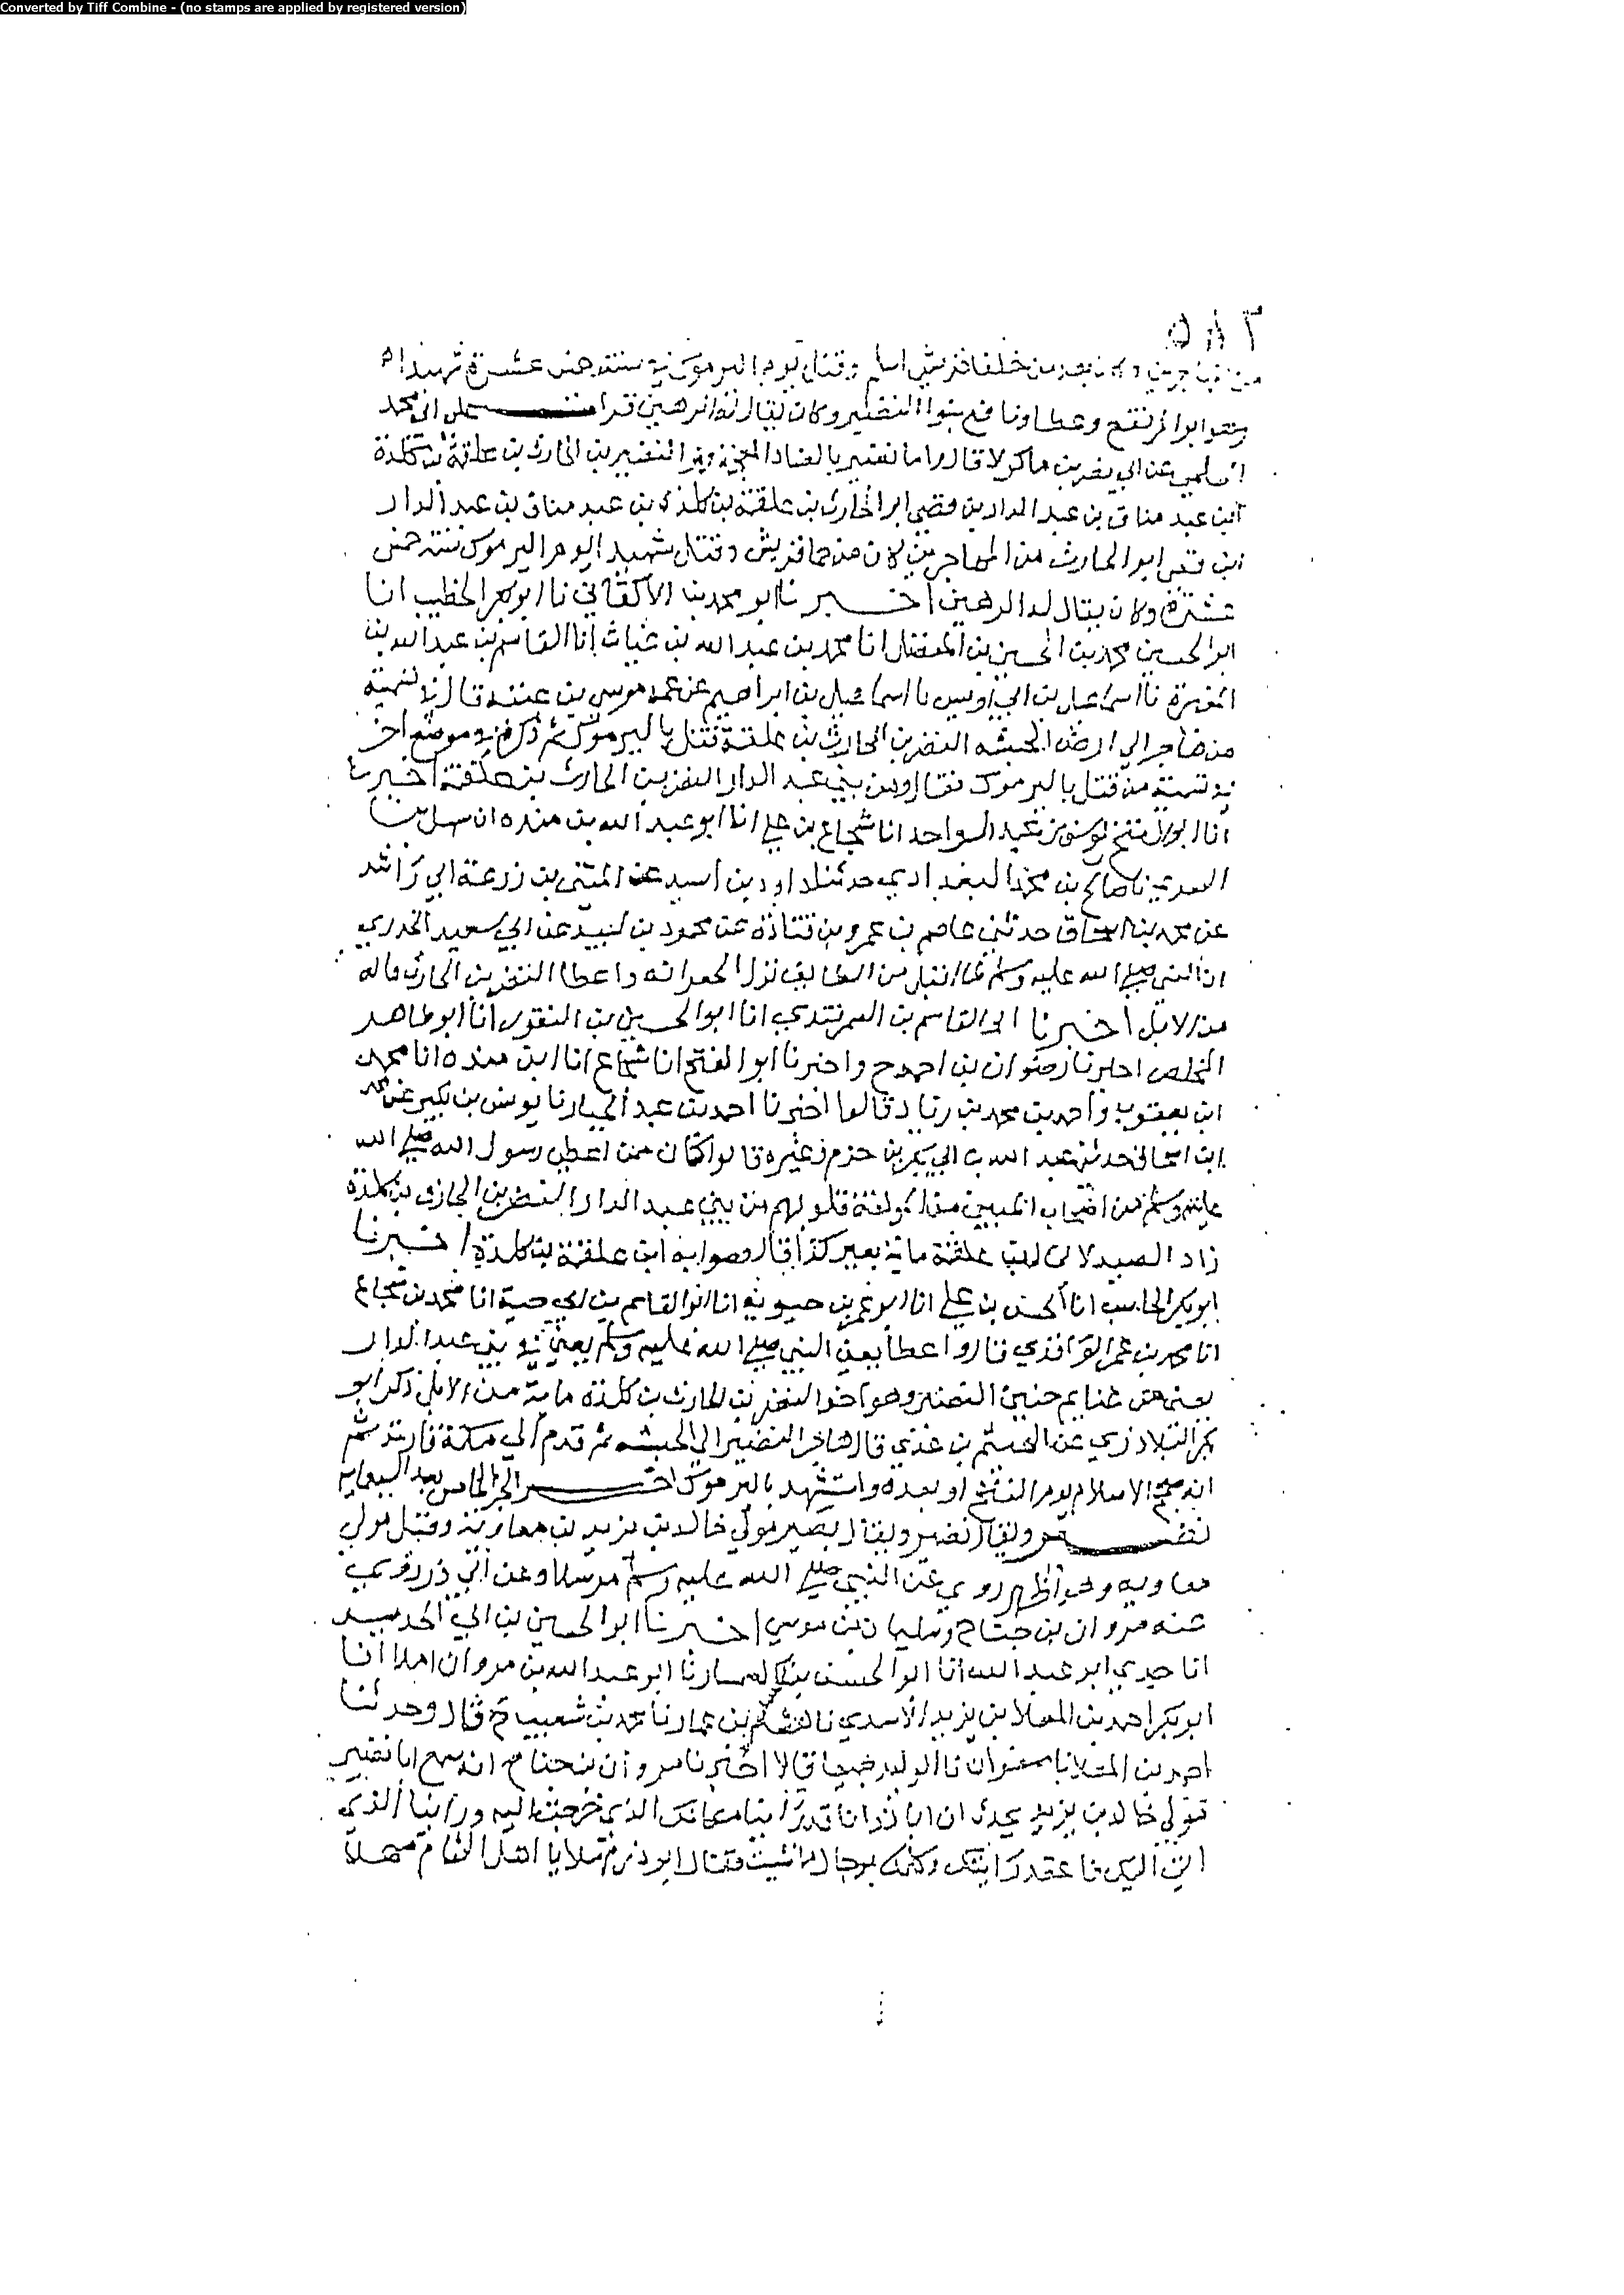 Converted by Tiff Combine - (no stamps are applied by registered version)
من المهاجرين وكان يعد من حلفا قريش اسلم وقتل يوم اليرموك في سنة خمس عشرة شهيدا
وعطا ونافع بنوا النضير وكان يقال له الرهين قرات على ابي محمد
السلمي عن ابي نصر بن ماكولا قال واما نضير بالضاد المعجمة النضير بن الحارث بن علقمة بن كلدة
ابن عبد مناف بن عبد الدار بن قصي ابو الحارث بن علقمة بن كلدة بن عبد مناف بن عبد الدار
ابن قصي ابو الحارث من المهاجرين كان من حلما قريش وقتل شهيدا يوم اليرموك سنة خمس
عشرة وكان يقال له الرهين اخبرنا ابو محمد بن الاكفاني نا ابو بكر الخطيب انا
ابو الحسين محمد بن الحسين بن الفضل انا محمد بن عبد الله بن عتاب انا القاسم بن عبد الله بن
المغيرة نا اسماعيل بن ابي اويس نا اسماعيل بن ابراهيم عن عمه موسى بن عقبة قال في تسمية
من هاجر الي ارض الحبشه النضر بن الحارث بن علقمة قتل باليرموك ثم ذكره في موضع اخر
في تسمية من قتل باليرموك فقال ومن بني عبد الدار النضر بن الحارث بن علقمة اخبرنا
انا ابو الفتح يوسف بن عبد الواحد انا شجاع بن علي انا ابو عبد الله بن منده انا سهل بن
السري نا صالح بن محمد البغدادي حدثنا داود بن اسيد عن المثنى بن زرعة ابي راشد
عن محمد بن اسحاق حدثني عاصم بن عمرو بن قتادة عن محمود بن لبيد عن ابي سعيد الخدري
ان النبي صلى الله عليه وسلم لما اقبل من الطايف نزل الجعرانه واعطا النضر بن الحارث مايه
من الابل اخبرنا ابو القاسم بن السمرقندي انا ابو الحسين بن النقور انا ابو طاهر
المخلص اخبرنا رضوان بن احمد ح واخبرنا ابو الفتح انا شجاع انا ابن منده انا محمد
ابن يعقوب واحمد بن محمد بن زياد قالوا اخبرنا احمد بن عبد الجبار نا يونس بن بكير عن محمد
ابن اسحاق حدثني عبد الله بن ابي بكر بن حزم وغيره قالوا كان ممن اعطى رسول الله صلى الله
عليه وسلم من اصحاب المبين من المولفة قلوبهم من بني عبد الدار النضر بن الحارث بن كلدة
زاد الصيدلاني بن علقمة ماية بعير كذا قال وصوابه ابن علقمة بن كلدة اخبرنا
ابو بكر الحاسب انا الحسن بن علي انا ابو عمر بن حيوية انا ابو القاسم بن ابي حية انا محمد بن شجاع
انا محمد بن عمر الواقدي قال واعطا يعني النبي صلى الله عليه وسلم يعني في بني عبد الدار
يعني من غنايم حنين النضير وهو اخو النضر بن الحارث بن كلدة ماية من الابل ذكر ابو
بكر البلاذري عن الهيثم بن عدي قال هاجر النضير الي الحبشه ثم قدم الي مكة فارتد ثم
انه صحح الاسلام يوم الفتح او بعده واستشهد باليرموك اخر الجز الخامس بعد السبعمايه
نضير ويقال نصير ويقال بصير مولى خالد بن يزيد بن معاوية وقيل مولى
معاويه وهو اظهر روي عن النبي صلى الله عليه وسلم مرسلا وعن ابي ذر روي
عنه مروان بن جناح وسليمان بن موسى اخبرنا ابو الحسين بن ابي الحديد
انا جدي ابو عبد الله انا ابو الحسن بن السمسار نا ابو عبد الله بن مروان املا انا
ابو بكر احمد بن المعلا بن يزيد الاسدي نا هشام بن عمار نا محمد بن شعيب ح قال وحدثنا
احمد بن المعلا نا صفوان نا الوليد جميعا قالا اخبرنا مروان بن جناح انه سمع ابا نضير
مولى خالد بن يزيد يحدث ان ابا ذر انا قد راينا مكانك الذي خرجت اليه وراينا الذي
الي اليك فاعقد رايتك وكلمك برجال ما شيت فقال ابو ذر مهلا يا اهل الشام مهلا